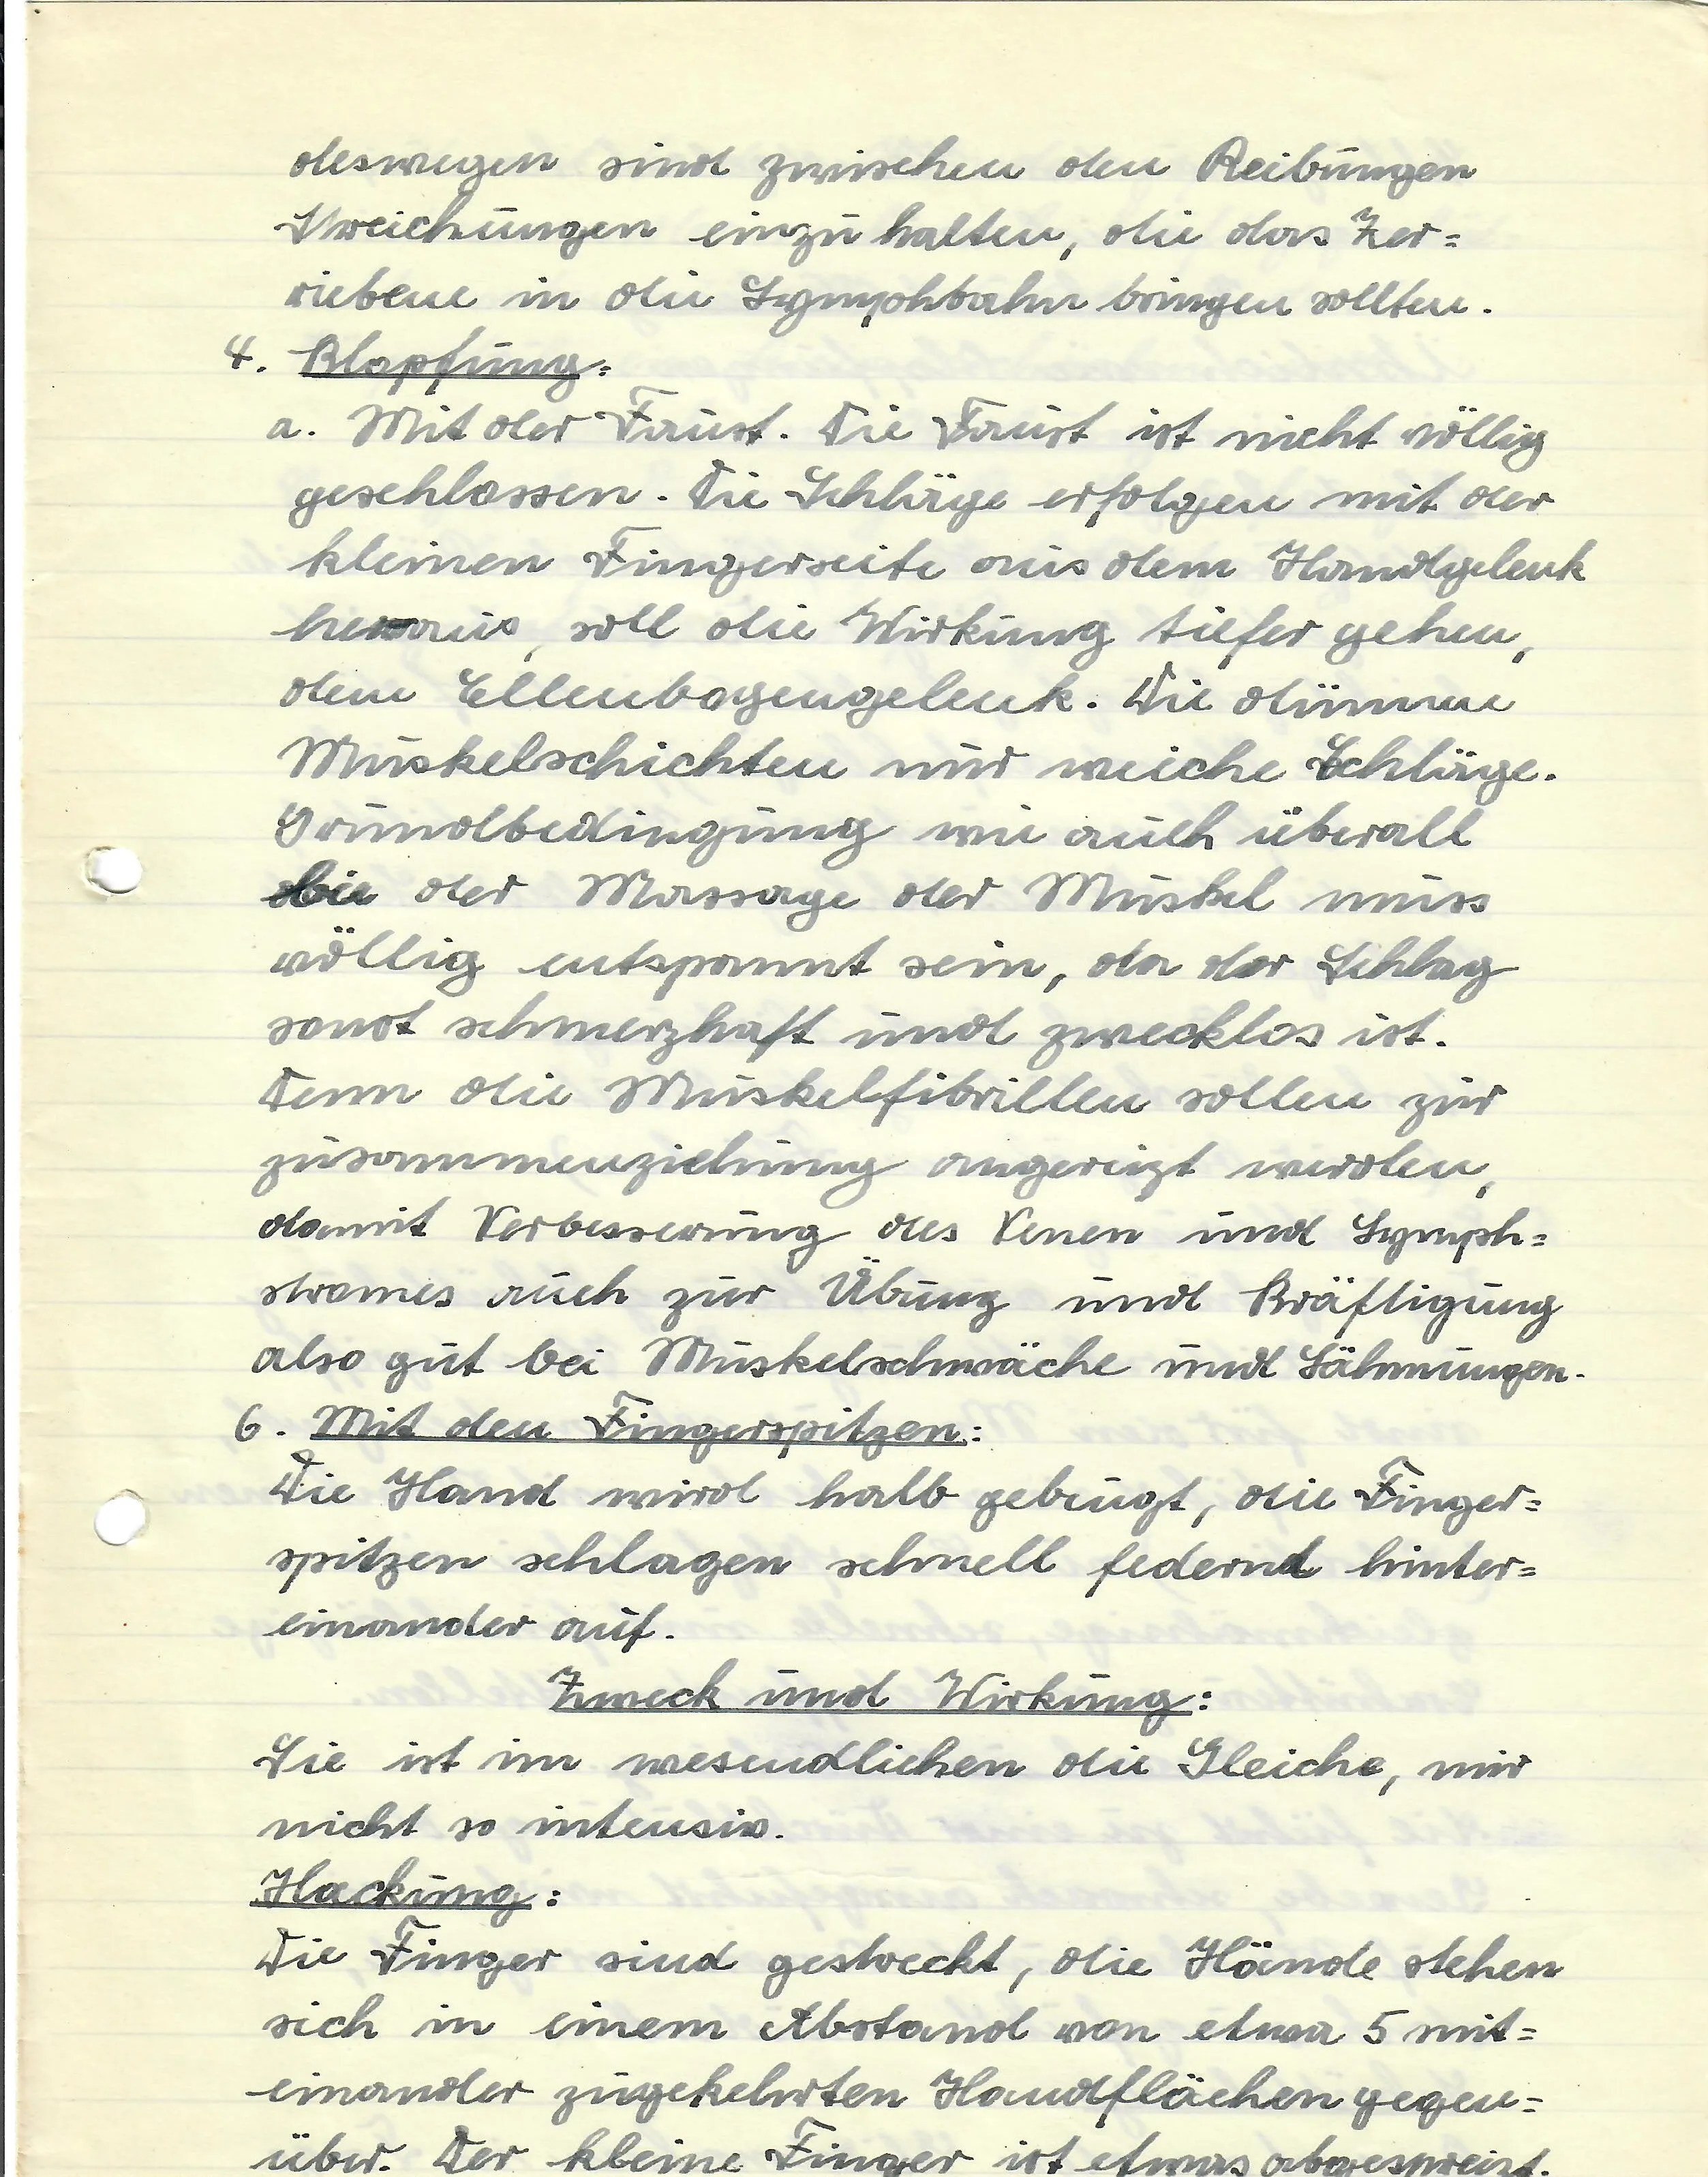 deswegen sind zwischen den Reibungen
Streichungen einzuhalten, die das Zer=
riebene in die Lymphbahn bringen sollten.
4. Klopfung:
a. Mit der Faust. Die Faust ist nicht völlig
geschlossen. Die Schläge erfolgen mit der
kleinen Fingerseite aus dem Handgelenk
heraus, soll die Wirkung tiefer gehen,
dem Ellenbogengelenk. Die dünnen
Muskelschichten nur weiche Schläge.
Grundbedingung wie auch überall
bie der Massage der Muskel muss
völlig entspannt sein, da der Schlag
sonst schmerzhaft und zwecklos ist.
Denn die Muskelfibrillen sollen zur
zusammenziehung angereizt werden,
damit Verbesserung des Venen und Lymph=
stromes auch zur Übung und Kräftigung
also gut bei Muskelschwäche und Lähmungen.
6. Mit den Fingerspitzen:
Die Hand wird halb gebeugt, die Finger=
spitzen schlagen schnell federnd hinter=
einander auf.
Zweck und Wirkung:
Sie ist im wesendlichen die Gleiche, nur
nicht so intensiv.
Hackung:
Die Finger sind gestreckt, die Hände stehen
sich in einem Abstand von etwa 5 mit=
einander zugekehrten Handflächen gegen=
über. Der kleine Finger ist etwas abgespreizt.